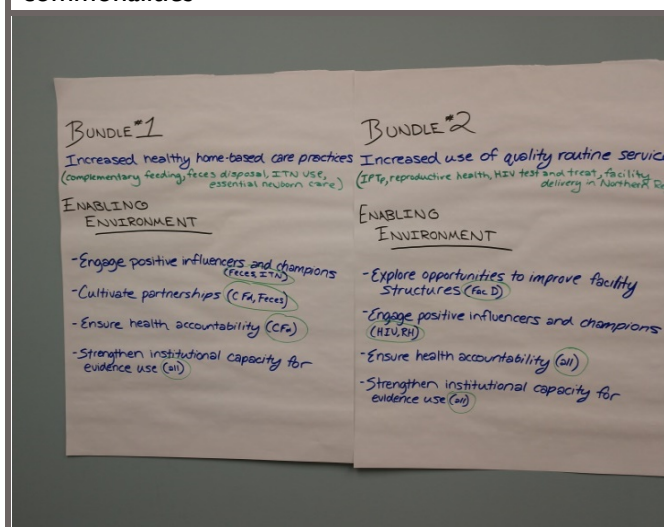 BUNDLE #1
Increased healthy home-based care practices
(complementary feeding, feces disposal, ITN use,
essential newborn care)
ENABLING
ENVIRONMENT
- Engage positive influencers and champions
(Feces, ITN)
- Cultivate partnerships (CFd, Feces)
- Ensure health accountability
- Strengthen institutional capacity for
evidence use (all)
BUNDLE #2
Increased use of quality routine servic
(IPTp, reproductive health, HIV test and treat, facility
delivery in Northern
ENABLING
ENVIRONMENT
- Explore opportunities to improve facility
structures (Fac D)
- Engage positive influencers and champions
(HIV, RH)
- Ensure health accountability (all)
- Strengthen institutional capacity for
evidence use (all)